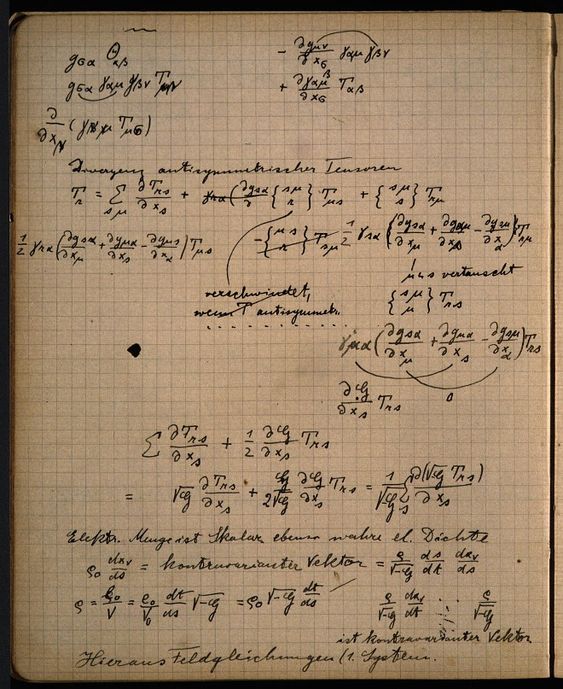 g_{σα} Θ_{αβ}
g_{σα} γ_{αμ} γ_{βν} T_{μν}
∂/∂x_ν (γ_{νμ} T_{μσ})
− ∂g_{μν}/∂x_σ γ_{αμ} γ_{βν}
+ ∂γ_{αμ}/∂x_σ T_{αβ}
Divergenz antisymmetrischer Tensoren
T_r = Σ_{sμ} ∂T_{rs}/∂x_s + {sμ r} T_{μs} + {sμ s} T_{rμ}
1/2 γ_{rα} (∂g_{sα}/∂x_μ + ∂g_{μα}/∂x_s − ∂g_{μs}/∂x_α) T_{μs}
−{μs r} T_{sμ}
1/2 γ_{sα} (∂g_{sα}/∂x_μ + ∂g_{αμ}/∂x_s − ∂g_{sμ}/∂x_α) T_{rμ}
μ u s vertauscht
{sμ μ} T_{rs}
verschwindet,
wenn T antisymmetr.
γ_{μα} (∂g_{sα}/∂x_μ + ∂g_{μα}/∂x_s − ∂g_{sμ}/∂x_α) T_{rs}
0
∂G/∂x_s T_{rs}
Σ ∂T_{rs}/∂x_s + 1/2 ∂G/∂x_s T_{rs}
= √G ∂T_{rs}/∂x_s + G/2√G ∂G/∂x_s T_{rs} = 1/√G Σ_s ∂(√G T_{rs})/∂x_s
Elektr. Menge ist Skalar ebenso wahre el. Dichte
ρ_0 dx_ν/ds = kontravarianter Vektor = ρ/√−G ds/dt dx_ν/ds
ρ = ρ_0/V = ρ_0/V_0 dt/ds √−G = ρ_0 √−G dt/ds
ρ/√−G dx_ν/dt . . . ρ/√−G
ist kontravarianter Vektor.
Hieraus Feldgleichungen (1. System.